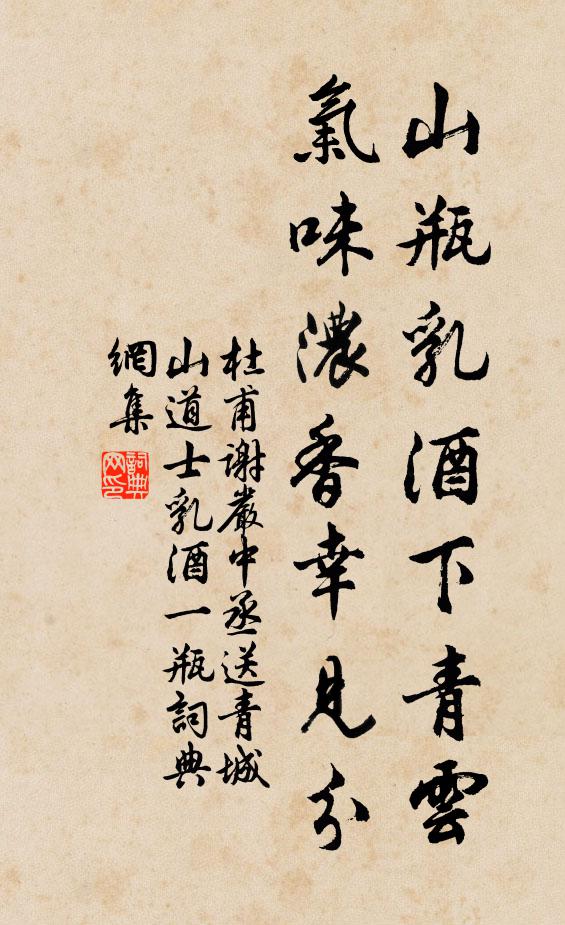 山瓶乳酒下青雲
氣味濃香幸見分
杜甫謝嚴中丞送青城
山道士乳酒一瓶詞典
網集
詞典
网印